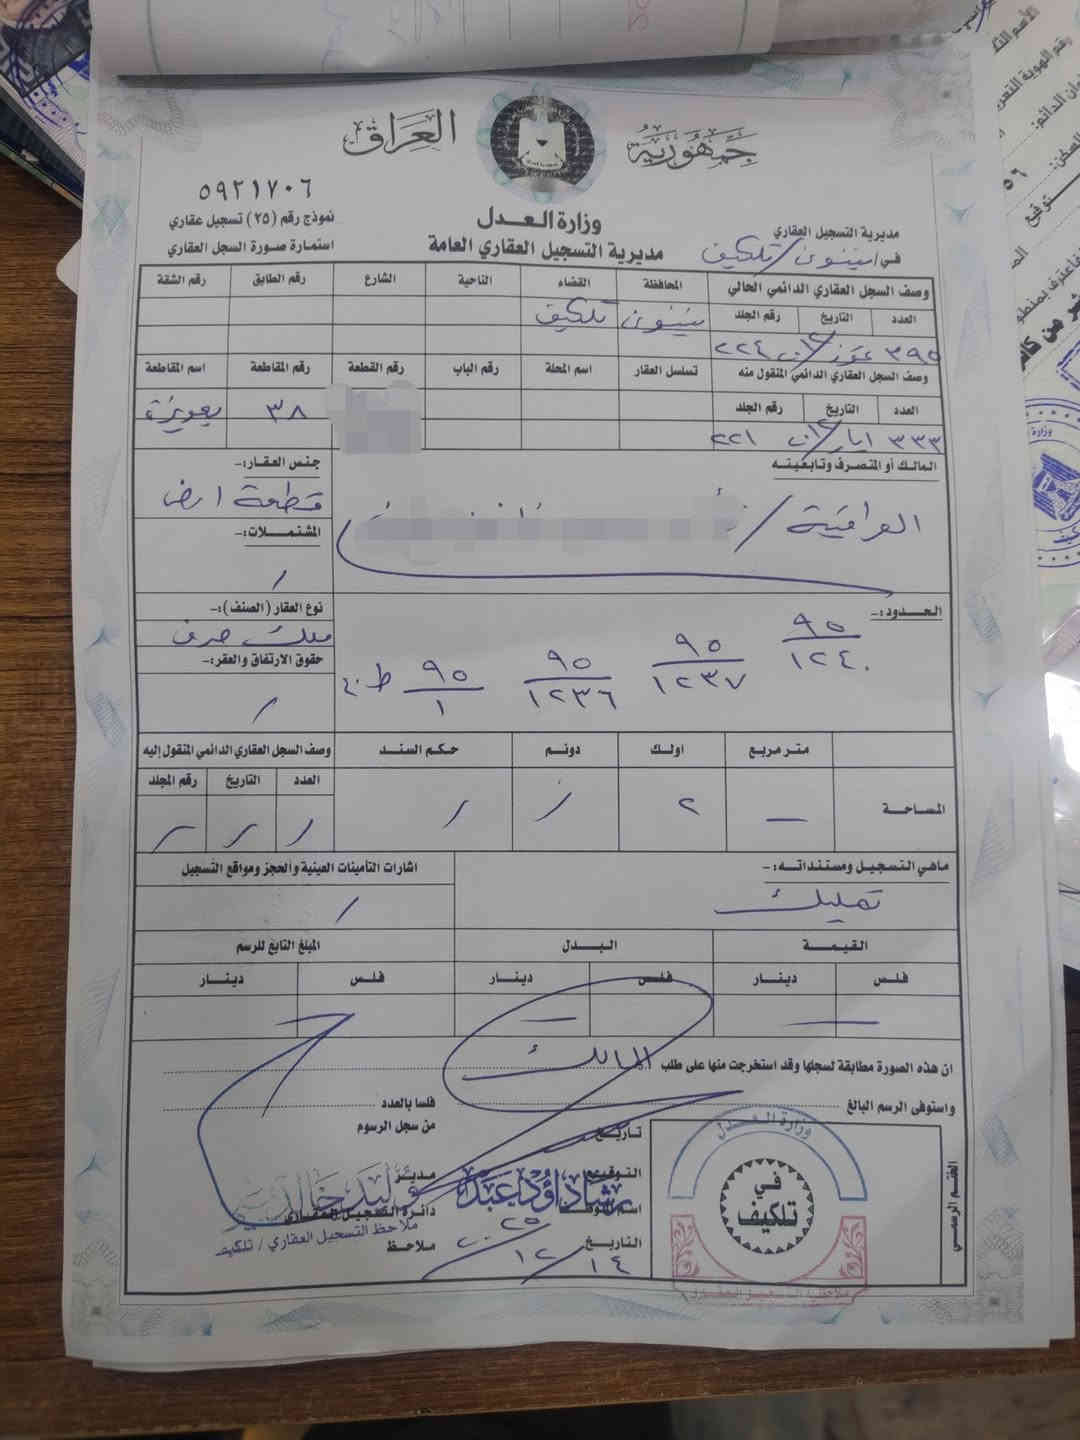 جمهورية العراق
٥٩٢١٧٠٦
وزارة العدل
مديرية التسجيل العقاري العامة
نموذج رقم (٢٥) تسجيل عقاري
استمارة صورة السجل العقاري
مديرية التسجيل العقاري
في/ نينوى/ تلكيف
وصف السجل العقاري الدائمي الحالي المحافظة القضاء الناحية الشارع رقم الطابق رقم الشقة
العدد التاريخ رقم الجلد نينوى تلكيف
٣٩٥ تموز ٢٠١٢ ٢٢٤
وصف السجل العقاري الدائمي المنقول منه تسلسل العقار اسم المحلة رقم الباب رقم القطعة رقم المقاطعة اسم المقاطعة
العدد التاريخ رقم الجلد ٣٨ بعويزة
٣٣٣ ايار ٢٠١٢ ٢٢١
المالك أو المتصرف وتابعيته جنس العقار:-
العراقية / قطعة ارض
المشتملات:-
/
الحدود:- نوع العقار (الصنف):-
ملك صرف
حقوق الارتفاق والعقر:-
٩٥/١٢٤٠ ٩٥/١٢٣٧ ٩٥/١٢٣٦ ٩٥/١ ط٤٠
/
متر مربع اولك دونم حكم السند وصف السجل العقاري الدائمي المنقول إليه
العدد التاريخ رقم المجلد
المساحة — ٢ / / / / /
ماهي التسجيل ومستنداته:- اشارات التأمينات العينية والحجز ومواقع التسجيل
تمليك /
القيمة البدل المبلغ التابع للرسم
فلس دينار فلس دينار فلس دينار
ان هذه الصورة مطابقة لسجلها وقد استخرجت منها على طلب المالك
واستوفى الرسم البالغ فلسا بالعدد
تاريخ من سجل الرسوم
التوقيع مدير
اسم الموظف دائرة التسجيل العقاري
رشاد داؤد عبد وليد خالد
ملاحظ التسجيل العقاري / تلكيف
التاريخ ١٤/١٢/٢٠٢٥ ملاحظ
الختم الرسمي
وزارة العدل
في
تلكيف